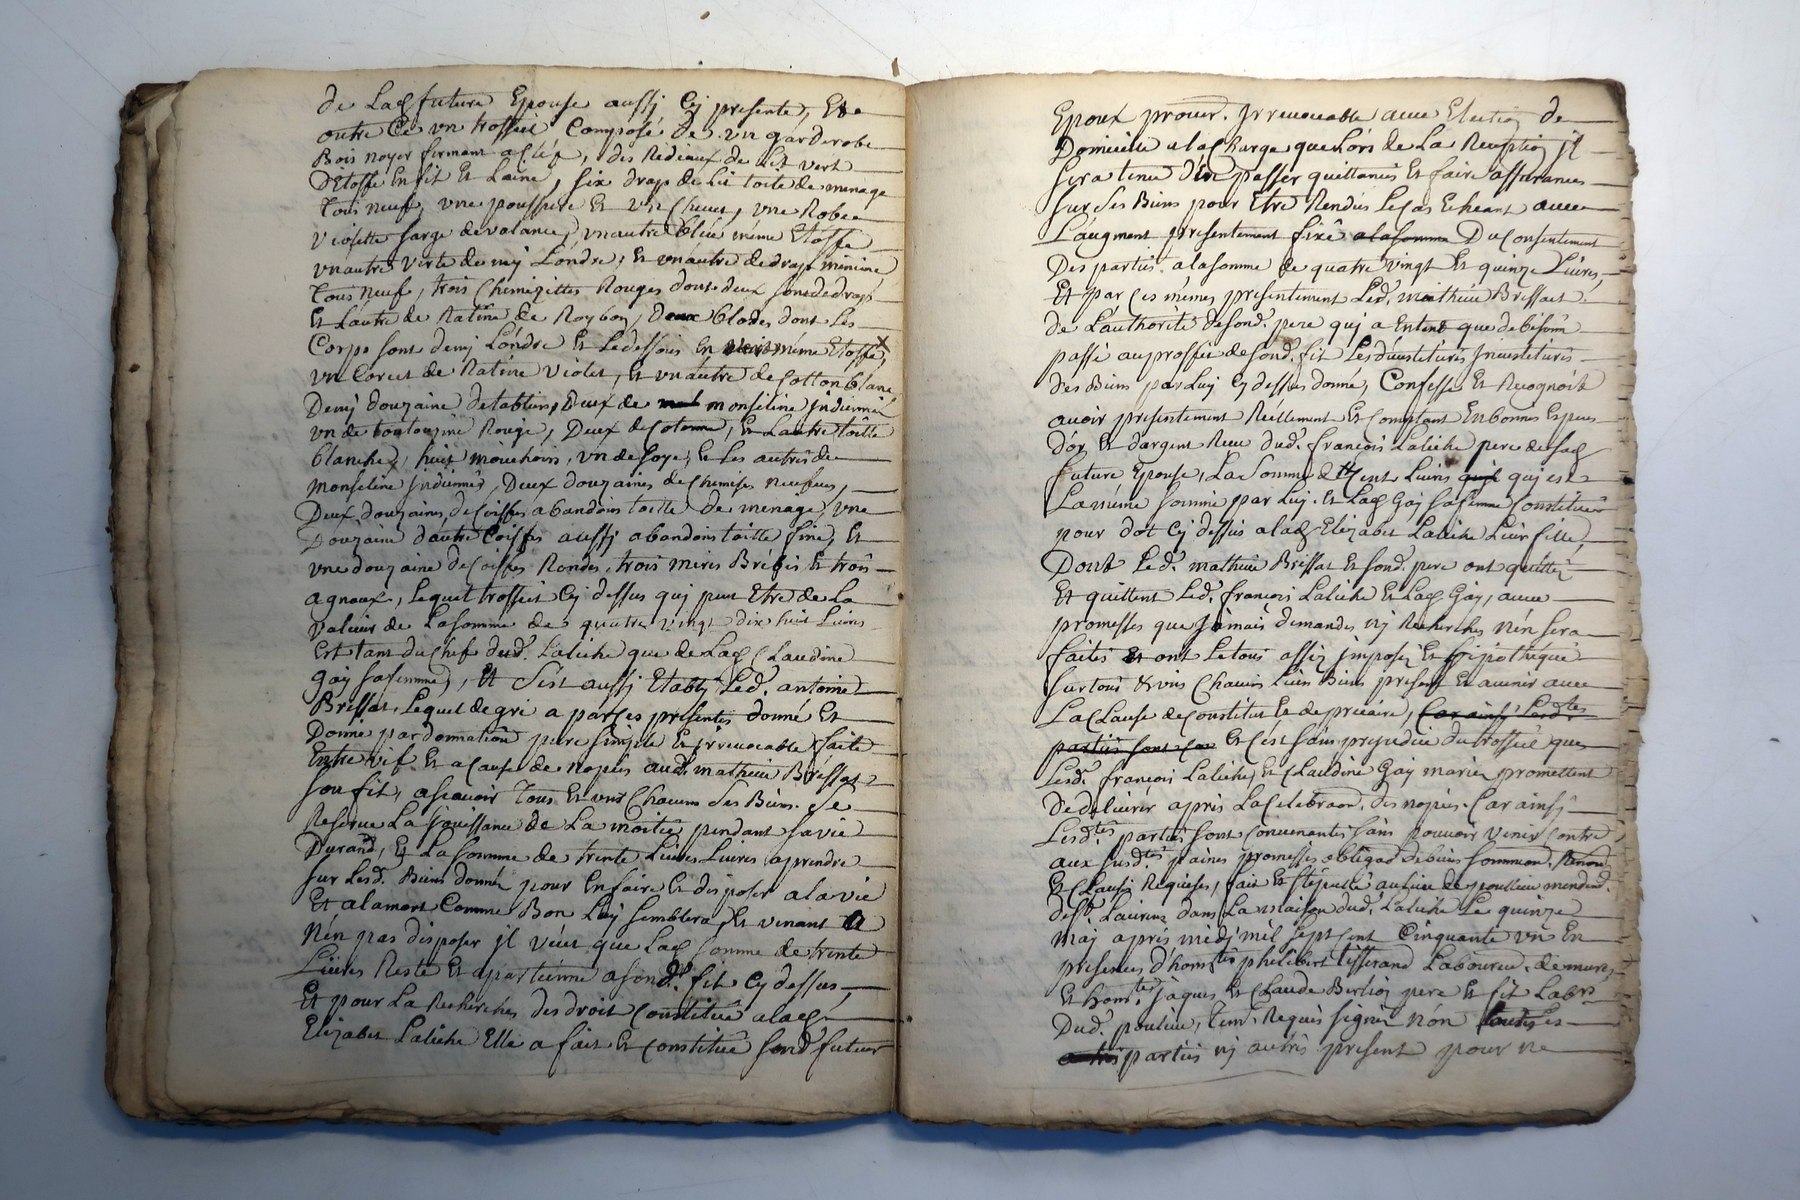 de Lad future Epouse aussy Cy presente, Et
outre Ce un trossеil Composé de un garderobe
Bois noyer fermant a Clef, des Rideaux de Lit vert
D'Etoffe En fil Et Laine, six draps de Lit toile de menage
tous neufs, une Et un Chevet, une Robe
violette sarge de valance, un autre bleu méme Etoffe
un autre verte demy Londre, Et un autre de drap minime
tous neufs, trois Chemizettes Rouges dont deux sont de drap
Et L'autre de Ratine de Roybon, blodes dont Les
Corps sont demy Londre Et Le dessous En méme Etoffe
un Corcet de Ratine violet, Et un autre de Cotton blanc
Demy douzaine de tabliers, deux de monseline indienne
un de Rouge, Deux de Cotonne, Et L'autre toille
blanche, huit mouchoirs, un de soye, Et Les autres de
monseline indienne, Deux douzaines de Chemises neufves,
Deux douzaines de Coiffes a bandoirs toille de menage, une
Douzaine d'autre Coiffes aussy a bandoirs toille fine, Et
une douzaine de Coiffes Rondes, trois meres Brebis Et trois
agneaux, Lequel trosseil Cy dessus qui peut Etre de La
valeur de La somme de quatre vingt dix huit Livres
Est tant du Chef dud. Laliche que de Lad Claudine
Gay sa femme, Et s'est aussy Etably Led. antoine
Brissat, Lequel de gré a par Ces presentes donné Et
Donne par donnation pure simple Et irrevocable faite
Entre vif Et a Cause de nopces aud. mathieu Brissat
son fils, a scavoir tous Et uns Chacuns ses Biens. se
Reserve La jouissance de La moitié pendant sa vie
Durand, Et La somme de trente Livres Livres a prendre
sur Lesd. Biens donnés pour En faire Et disposer a la vie
Et a la mort Comme Bon Luy semblera Et venant a
n'en pas disposer il veut que Lad somme de trente
Livres Reste Et apartienne a sond. fils Cy dessus,
Et pour La Recherches des droit Constitué a lad
Elizabet Laliche Elle a fait Et Constitué sond futur
Epoux procur. Irrevocable avec Election de
Domicille a la Charge que Lors de La Reception il
sera tenu d'En passer quittances Et faire assurances
sur ses Biens pour Etre Rendus Le Cas Echeant avec
L'augment presentement fixé a la somme Du Consentement
Des parties a la somme de quatre vingt Et quinze Livres,
Et par Ces mémes presentement Led. mathieu Brissat
de L'authorité de sond. pere qui a Entend que de besoin
passé au proffit de sond. fils Les dévestitures Investitures
des Biens par Luy Cy dessus donné, Confesse Et Recognoit
avoir presentement Réellement Et Comptant En bonnes Especes
d'or Et d'argent Receu dud. françois Laliche pere de Lad
future Epouse, La somme de Cent Livres qui est
La méme somme par Luy Et Lad Gay sa femme Constituée
pour dot Cy dessus a lad Elizabet Laliche Leur fille,
Dont Led. mathieu Brissat Et sond. pere ont quitté
Et quittent Led. françois Laliche Et Lad Gay, avec
promesses que jamais demandes ny Recherches n'En sera
faites Et ont Le tous assis imposez Et hipothéqué
sur tous Et uns Chacuns Leurs Biens presents Et avenir avec
La Clause de Constitut Et de precaire, Car ainsy Lesd.tes
parties sont Con Et C'est sans prejudice du trosseil que
Lesd. françois Laliche, Et Claudine Gay mariez promettent
De delivrer apres La Celebraon. des nopces. Car ainsy
Lesd.tes parties sont Convenantes sans pouvoir venir Contre
aux susd.tes paines promesses obligaon de biens soummaon. Renonç
Et Clauses Requises, fait Et stipullé au lieu de poullieu mandemt.
de St. Laurens dans La maison dud. Laliche Le quinze
may apres midy mil sept Cent Cinquante un En
presences d'hom.tes philibert tisserand Laboureur de
Et hom.tes jaques Et Claude Berlioz pere Et fils Labrs
Dud. poulieu, tem. Requis signer non Les
parties ny autres present pour ne